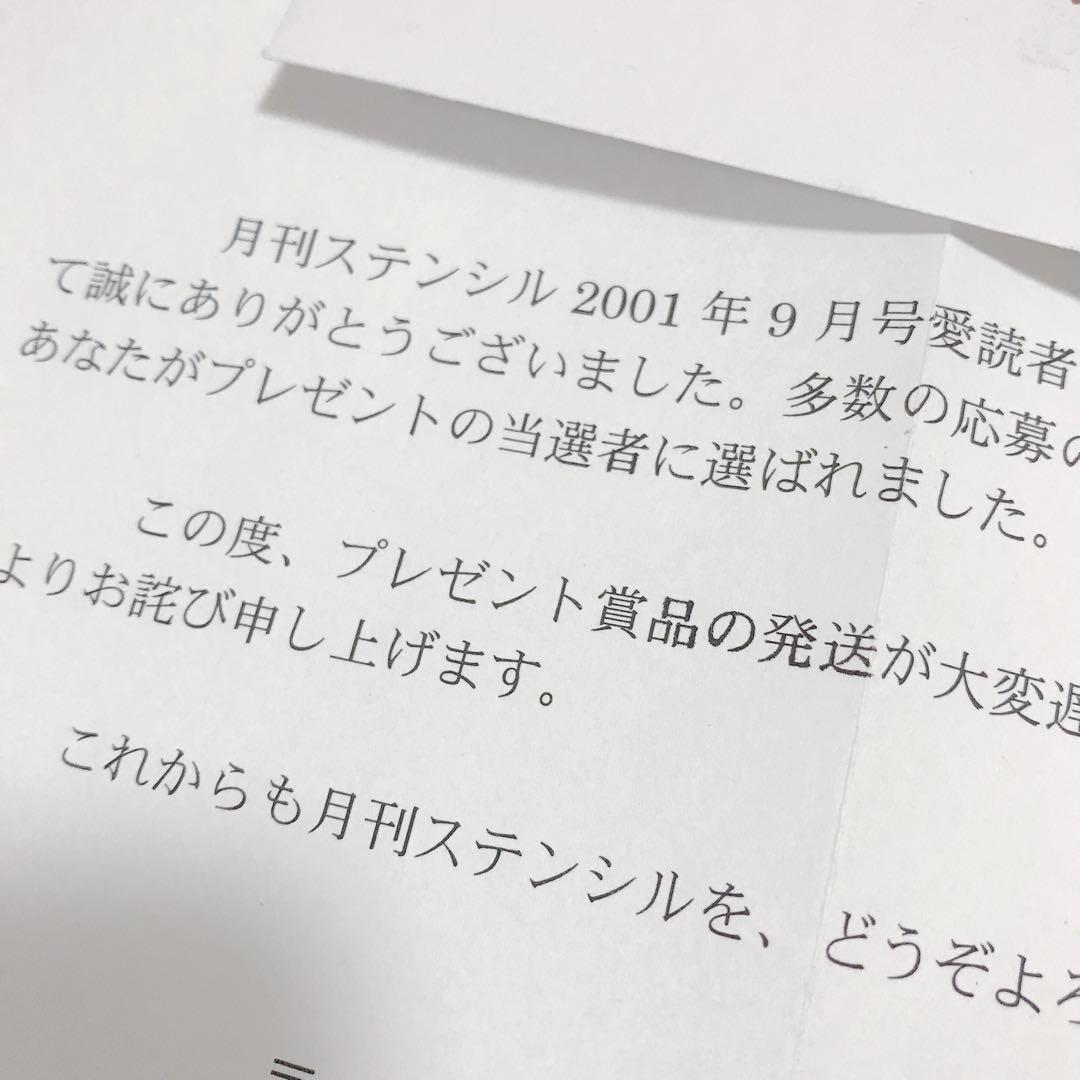 月刊ステンシル 2001 年 9 月号愛読者
て誠にありがとうございました。多数の応募の
あなたがプレゼントの当選者に選ばれました。
この度、プレゼント賞品の発送が大変遅
よりお詫び申し上げます。
これからも月刊ステンシルを、どうぞよろ
〒